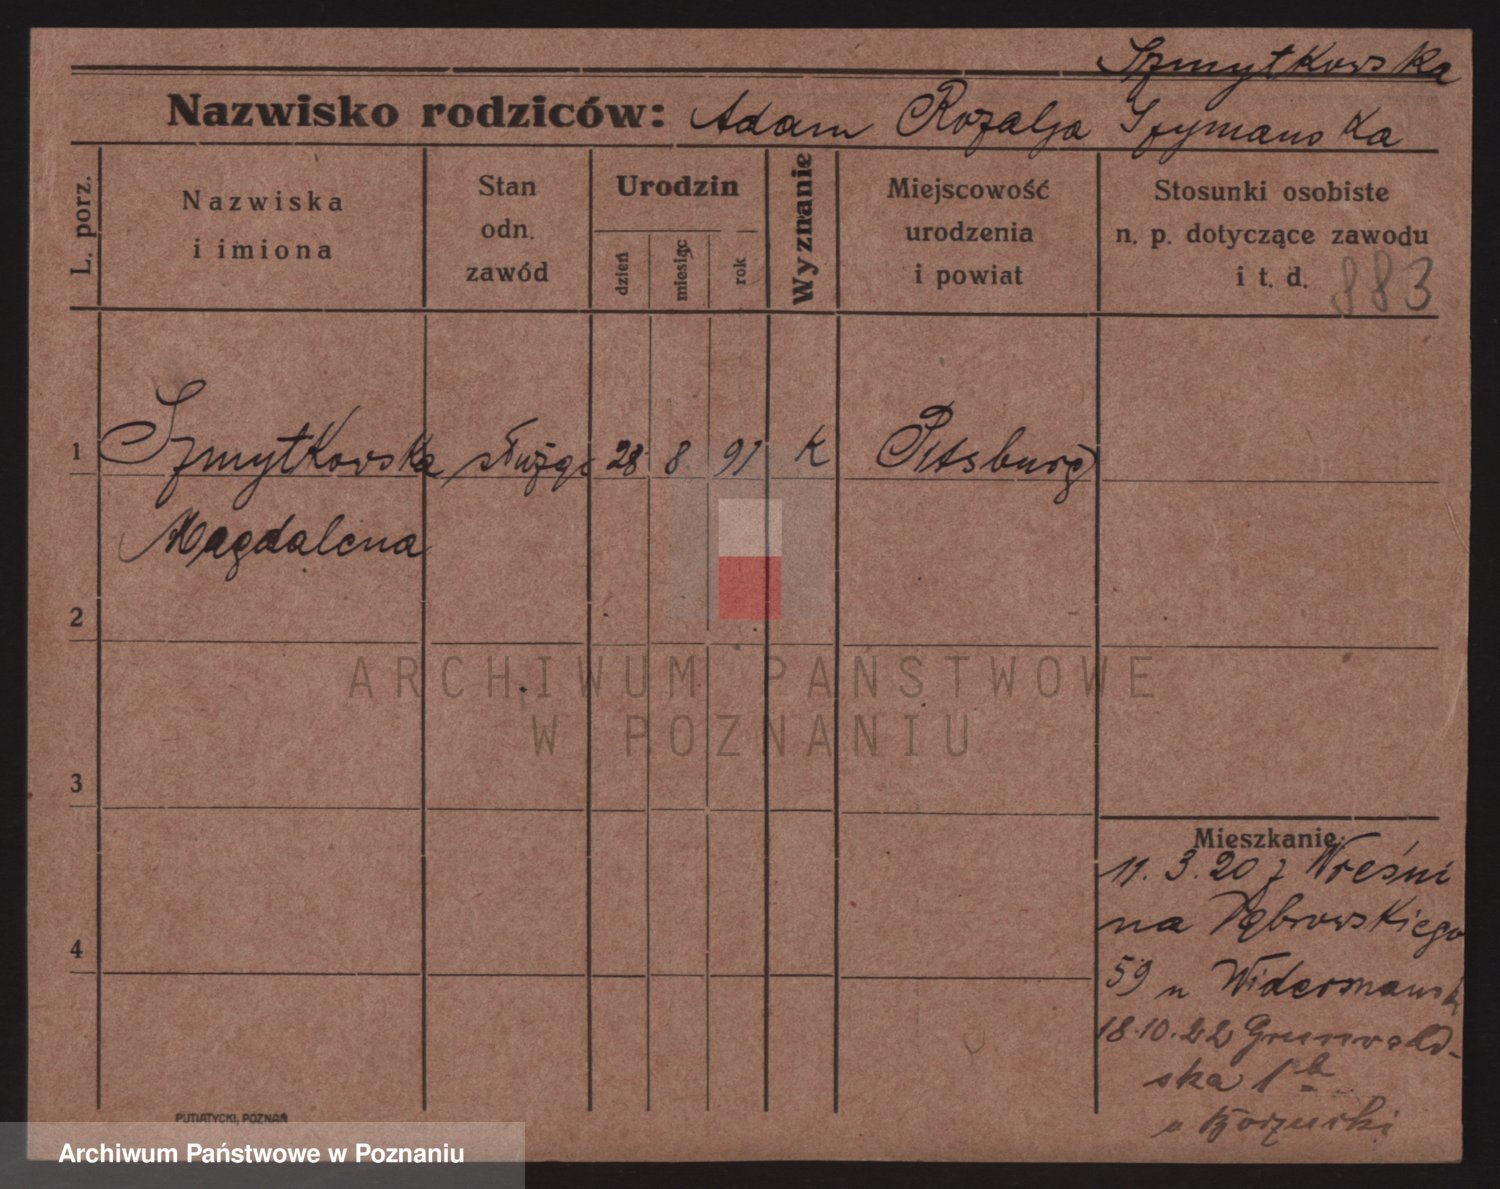 Szmytkowska
Nazwisko rodziców: Adam Rozalja Szymanska
L. porz.
Nazwiska
i imiona
Stan
odn.
zawód
Urodzin
dzień
miesiąc
rok
Wyznanie
Miejscowość
urodzenia
i powiat
Stosunki osobiste
n. p. dotyczące zawodu
i t. d.
883
1 Szmytkowska służąc 28 8 91 K Pitsburg
Magdalena
2
3
4
ARCHIWUM PAŃSTWOWE
W POZNANIU
Mieszkanie:
11. 3. 20 z Wreśni
na Dąbrowskiego
59 u
18.10.22 Grunwald-
ska 1
u
PUTIATYCKI, POZNAŃ
Archiwum Państwowe w Poznaniu